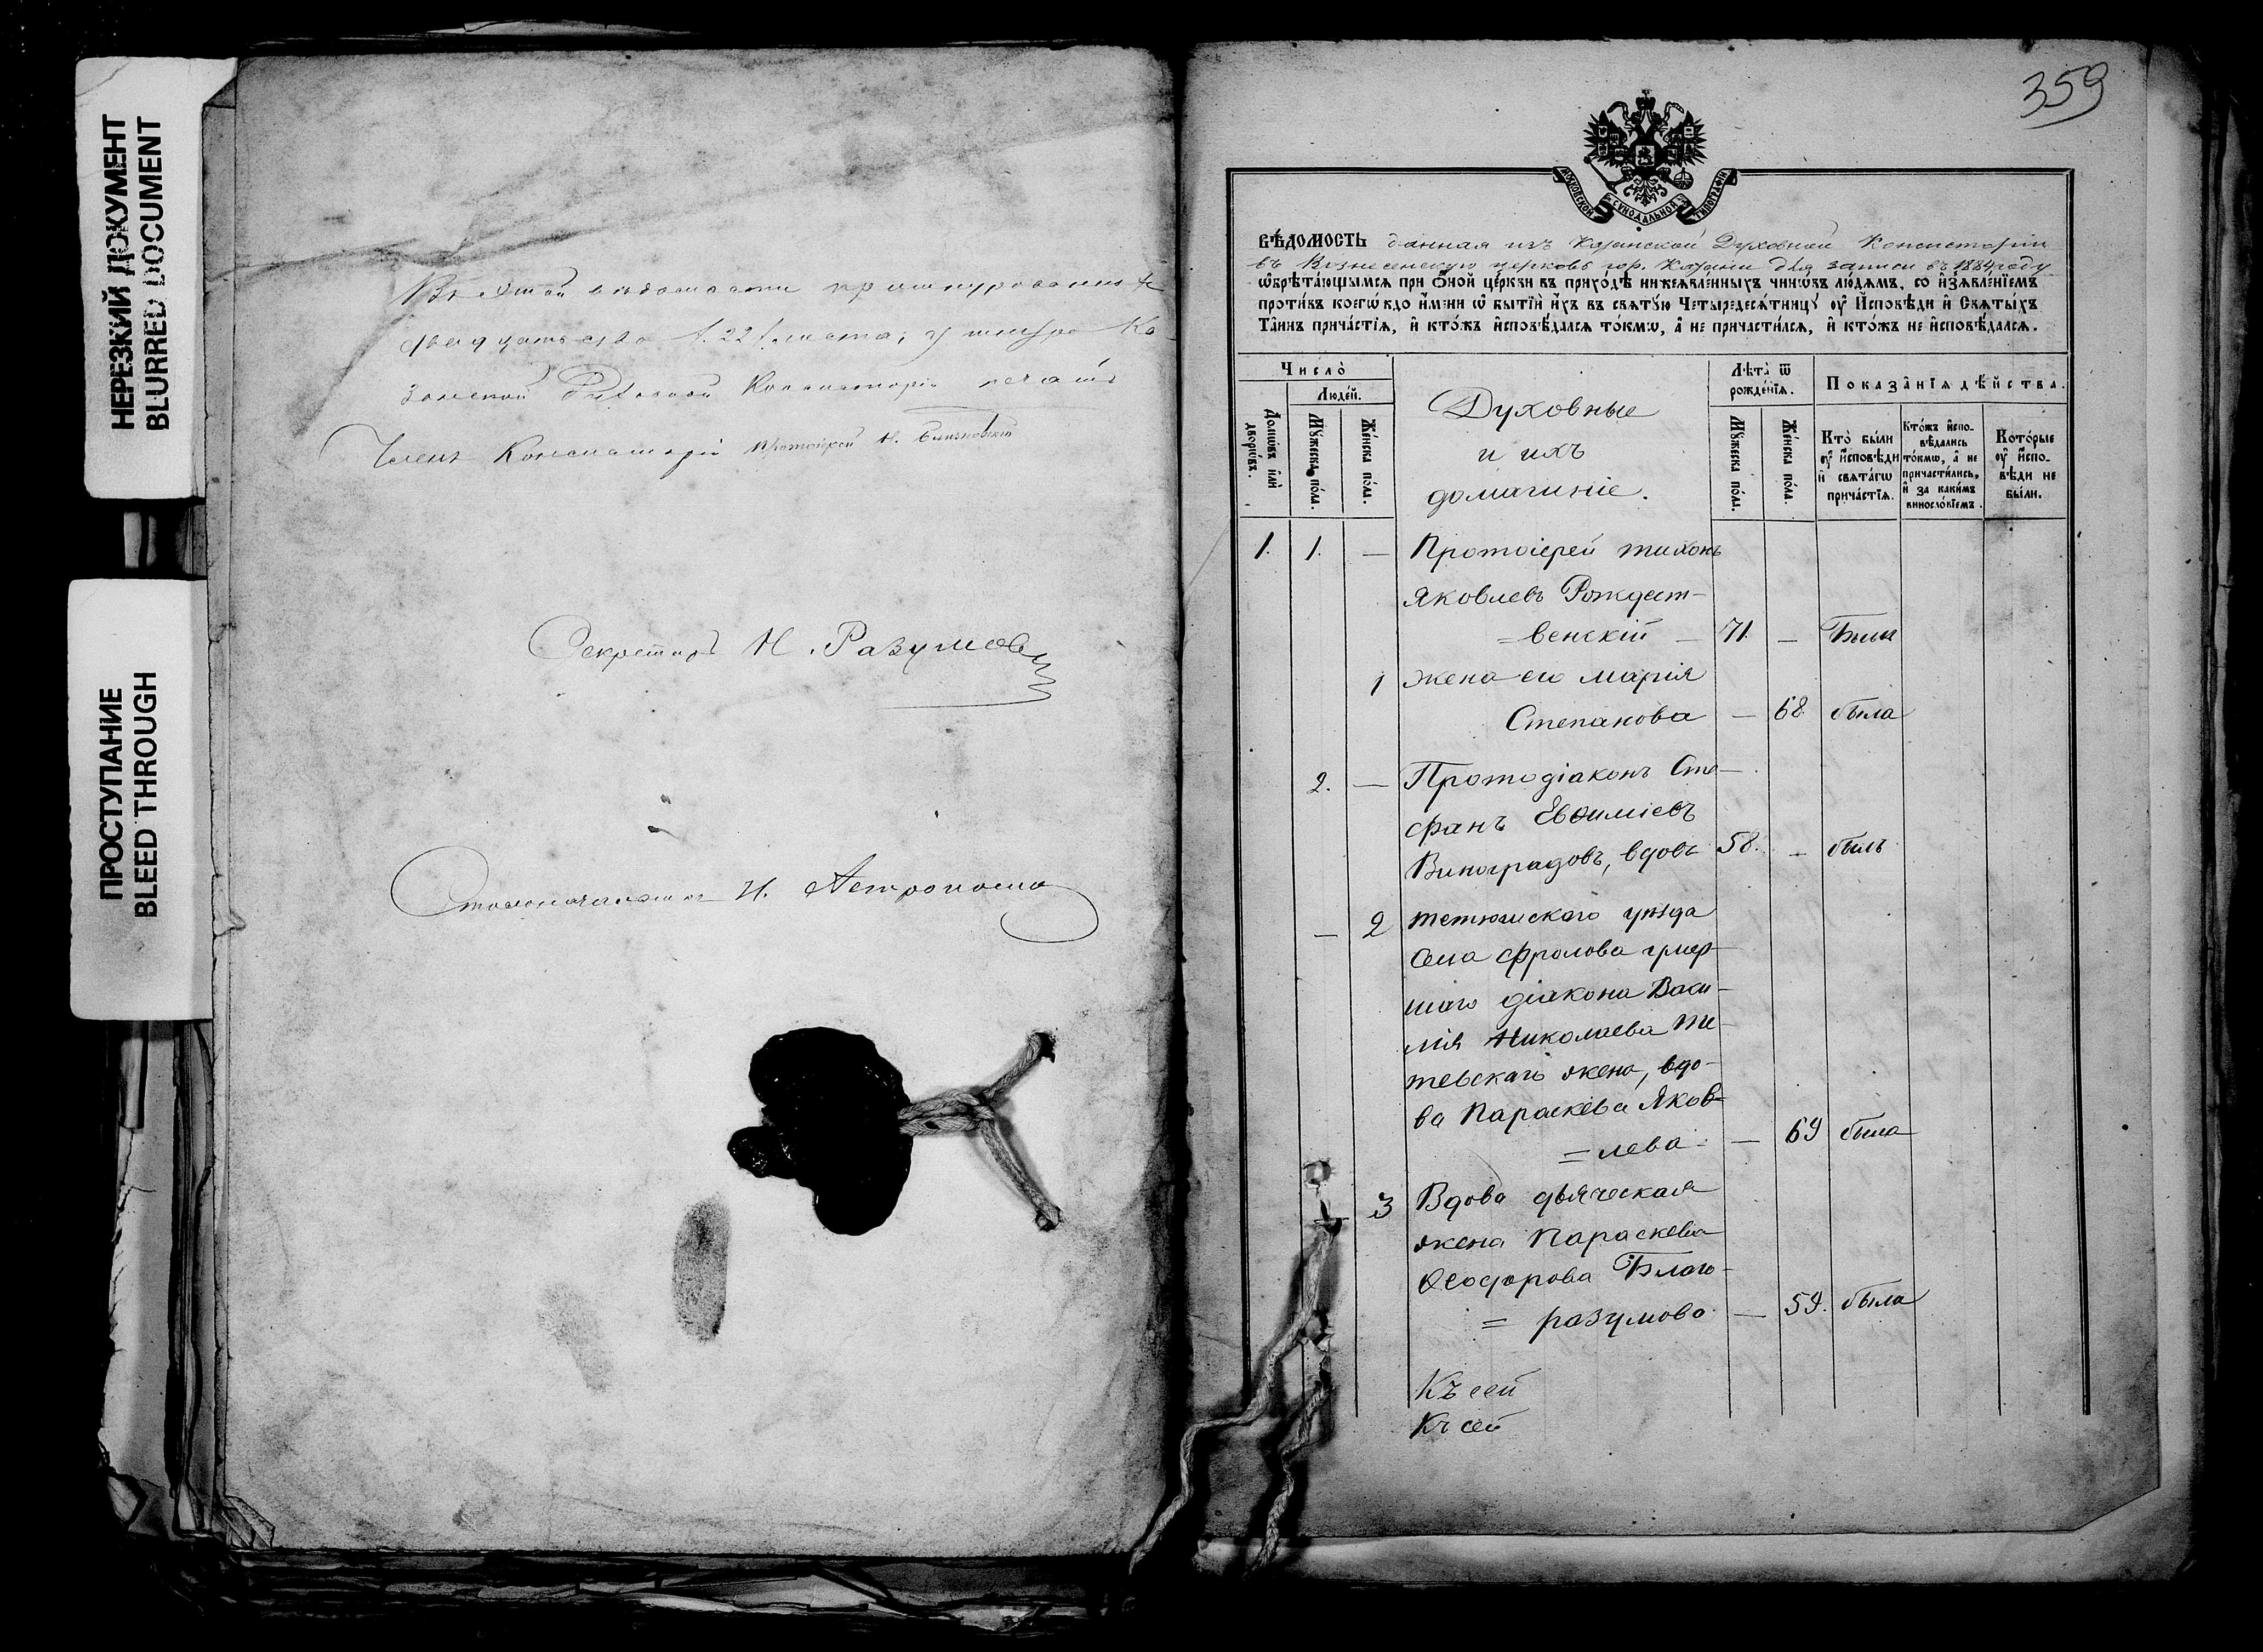 НЕРЕЗКИЙ ДОКУМЕНТ
BLURRED DOCUMENT
ПРОСТУПАНИЕ
BLEED THROUGH
Въ этой ведомости прошнурованныхъ
двадцать два /22/ листа; у шнура Ка
занской Духовной Консисторіи печать
Членъ Консисторіи Протоіерей
Секретарь Н. Разумовъ
Столоначальникъ И.
359
МОСКОВСКОЙ СѴНОДАЛЬНОЙ ТИПОГРАФІИ
ВѢДОМОСТЬ данная изъ Казанской Духовной Консисторіи
въ Вознесенскую церковь гор. Казани для записи въ 1884 году
ѡ҆брѣта́ющымсѧ при ѻ҆ной це́ркви въ прихо́дѣ нижеꙗвле́нныхъ чинѡ́въ лю́демъ, со и҆з̾ѧвле́нїемъ
проти́въ коегѡ́ждо и҆́мени ѡ҆ бытїи̑ и҆́хъ въ свѧту́ю Четыредесѧ́тницу ᲂу҆ И҆́сповѣди и҆ Свѧты́хъ
Та́инъ прича́стїѧ, и҆ кто́жъ и҆сповѣ́дался то́кмѡ, а҆ не причасти́лсѧ, и҆ кто́жъ не и҆сповѣ́дался.
Число̀
Люде́й.
Домѡ́въ и҆лѝ дворѡ́въ.
Му́жеска по́ла.
Же́нска по́ла.
Духовные
и ихъ
домашніе.
Лѣта̀ ѿ рожде́нїѧ.
Му́жеска по́ла.
Же́нска по́ла.
Показа̑нїѧ дѣ́йства.
Кто̀ бы́ли ᲂу҆ и҆́сповѣди и҆ свѧта́гѡ прича́стїѧ.
Кто́жъ и҆спо-
вѣ́дались
то́кмѡ, а҆ не
причасти́лись,
и҆ за каки́мъ
винослѡ́вїемъ.
Кото́рые
ᲂу҆ и҆́спо-
вѣди не
бы́ли.
1. 1. — Протоіерей Тихонъ
Яковлевъ Рождест-
=венскій — 71. — Былъ
1 жена его Марія
Степанова — 68 была
2. — Протодіаконъ Сте-
фанъ Евѳиміевъ
Виноградовъ, вдовъ 58. — былъ
— 2 Тетюшскаго уѣзда
села Фролова умер-
шаго діакона Васи-
лія Николаева
жена, вдо-
ва Параскева Яков-
=лева — 69 была
3 Вдова дьяческая
жена Параскева
Ѳеодорова Благо-
= разумова — 59. была
Къ сей
Къ сей